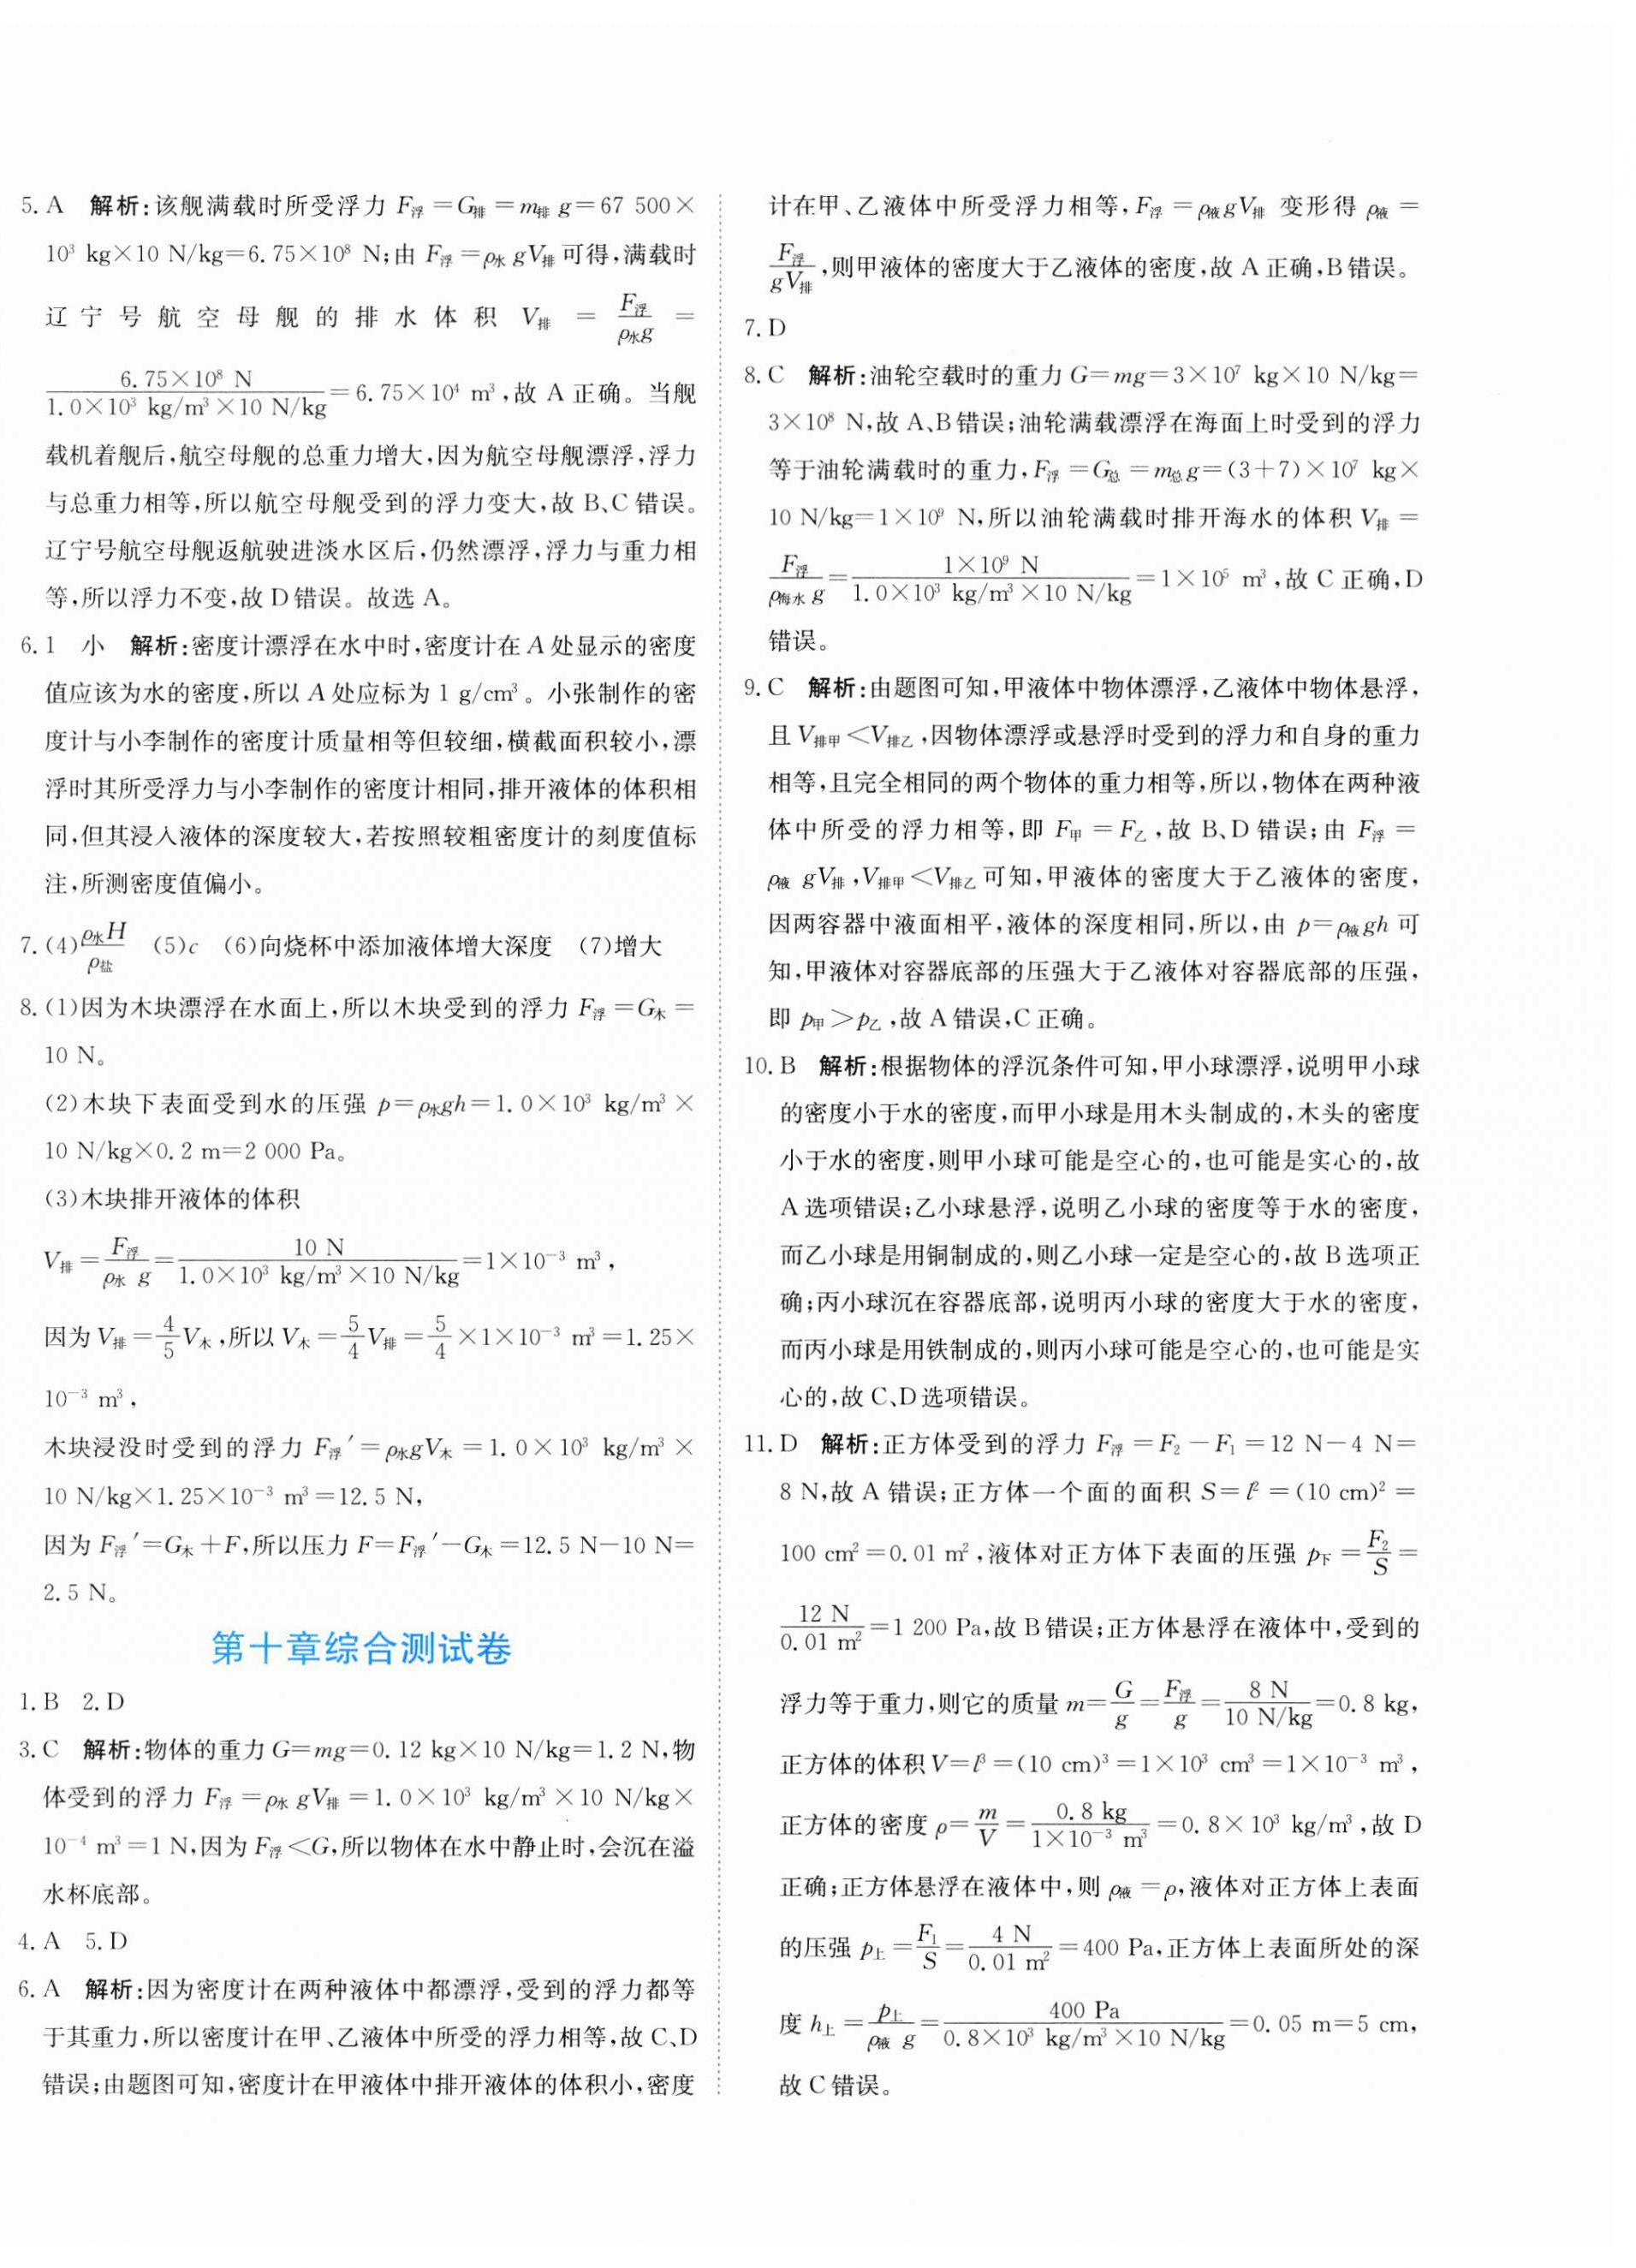 5. A 解析:该舰满载时所受浮力 F浮=G排=m排 g=67 500×
10³ kg×10 N/kg=6.75×10⁸ N;由 F浮=ρ水 gV排 可得,满载时
辽宁号航空母舰的排水体积 V排 = F浮/ρ水g =
6.75×10⁸ N/1.0×10³ kg/m³×10 N/kg=6.75×10⁴ m³,故 A 正确。当舰
载机着舰后,航空母舰的总重力增大,因为航空母舰漂浮,浮力
与总重力相等,所以航空母舰受到的浮力变大,故 B、C 错误。
辽宁号航空母舰返航驶进淡水区后,仍然漂浮,浮力与重力相
等,所以浮力不变,故 D 错误。故选 A。
6. 1 小 解析:密度计漂浮在水中时,密度计在 A 处显示的密度
值应该为水的密度,所以 A 处应标为 1 g/cm³。小张制作的密
度计与小李制作的密度计质量相等但较细,横截面积较小,漂
浮时其所受浮力与小李制作的密度计相同,排开液体的体积相
同,但其浸入液体的深度较大,若按照较粗密度计的刻度值标
注,所测密度值偏小。
7. (4)ρ水H/ρ盐 (5)c (6)向烧杯中添加液体增大深度 (7)增大
8. (1)因为木块漂浮在水面上,所以木块受到的浮力 F浮=G木=
10 N。
(2)木块下表面受到水的压强 p=ρ水gh=1.0×10³ kg/m³×
10 N/kg×0.2 m=2 000 Pa。
(3)木块排开液体的体积
V排=F浮/ρ水 g=10 N/1.0×10³ kg/m³×10 N/kg=1×10⁻³ m³,
因为 V排=4/5V木,所以 V木=5/4V排=5/4×1×10⁻³ m³=1.25×
10⁻³ m³,
木块浸没时受到的浮力 F浮′=ρ水gV木=1.0×10³ kg/m³×
10 N/kg×1.25×10⁻³ m³=12.5 N,
因为 F浮′=G木+F,所以压力 F=F浮′-G木=12.5 N-10 N=
2.5 N。
第十章综合测试卷
1. B 2. D
3. C 解析:物体的重力 G=mg=0.12 kg×10 N/kg=1.2 N,物
体受到的浮力 F浮=ρ水 gV排=1.0×10³ kg/m³×10 N/kg×
10⁻⁴ m³=1 N,因为 F浮<G,所以物体在水中静止时,会沉在溢
水杯底部。
4. A 5. D
6. A 解析:因为密度计在两种液体中都漂浮,受到的浮力都等
于其重力,所以密度计在甲、乙液体中所受的浮力相等,故 C、D
错误;由题图可知,密度计在甲液体中排开液体的体积小,密度
计在甲、乙液体中所受浮力相等,F浮=ρ液gV排 变形得 ρ液=
F浮/gV排,则甲液体的密度大于乙液体的密度,故 A 正确,B 错误。
7. D
8. C 解析:油轮空载时的重力 G=mg=3×10⁷ kg×10 N/kg=
3×10⁸ N,故 A、B 错误;油轮满载漂浮在海面上时受到的浮力
等于油轮满载时的重力,F浮=G总=m总g=(3+7)×10⁷ kg×
10 N/kg=1×10⁹ N,所以油轮满载时排开海水的体积 V排=
F浮/ρ海水 g=1×10⁹ N/1.0×10³ kg/m³×10 N/kg=1×10⁵ m³,故 C 正确,D
错误。
9. C 解析:由题图可知,甲液体中物体漂浮,乙液体中物体悬浮,
且 V排甲<V排乙,因物体漂浮或悬浮时受到的浮力和自身的重力
相等,且完全相同的两个物体的重力相等,所以,物体在两种液
体中所受的浮力相等,即 F甲=F乙,故 B、D 错误;由 F浮=
ρ液 gV排,V排甲<V排乙 可知,甲液体的密度大于乙液体的密度,
因两容器中液面相平,液体的深度相同,所以,由 p=ρ液gh 可
知,甲液体对容器底部的压强大于乙液体对容器底部的压强,
即 p甲>p乙,故 A 错误,C 正确。
10. B 解析:根据物体的浮沉条件可知,甲小球漂浮,说明甲小球
的密度小于水的密度,而甲小球是用木头制成的,木头的密度
小于水的密度,则甲小球可能是空心的,也可能是实心的,故
A 选项错误;乙小球悬浮,说明乙小球的密度等于水的密度,
而乙小球是用铜制成的,则乙小球一定是空心的,故 B 选项正
确;丙小球沉在容器底部,说明丙小球的密度大于水的密度,
而丙小球是用铁制成的,则丙小球可能是空心的,也可能是实
心的,故 C、D 选项错误。
11. D 解析:正方体受到的浮力 F浮=F₂-F₁=12 N-4 N=
8 N,故 A 错误;正方体一个面的面积 S=l²=(10 cm)²=
100 cm²=0.01 m²,液体对正方体下表面的压强 p下=F₂/S=
12 N/0.01 m²=1 200 Pa,故 B 错误;正方体悬浮在液体中,受到的
浮力等于重力,则它的质量 m=G/g=F浮/g=8 N/10 N/kg=0.8 kg,
正方体的体积 V=l³=(10 cm)³=1×10³ cm³=1×10⁻³ m³,
正方体的密度 ρ=m/V=0.8 kg/1×10⁻³ m³=0.8×10³ kg/m³,故 D
正确;正方体悬浮在液体中,则 ρ液=ρ,液体对正方体上表面
的压强 p上=F₁/S=4 N/0.01 m²=400 Pa,正方体上表面所处的深
度 h上=p上/ρ液 g=400 Pa/0.8×10³ kg/m³×10 N/kg=0.05 m=5 cm,
故 C 错误。